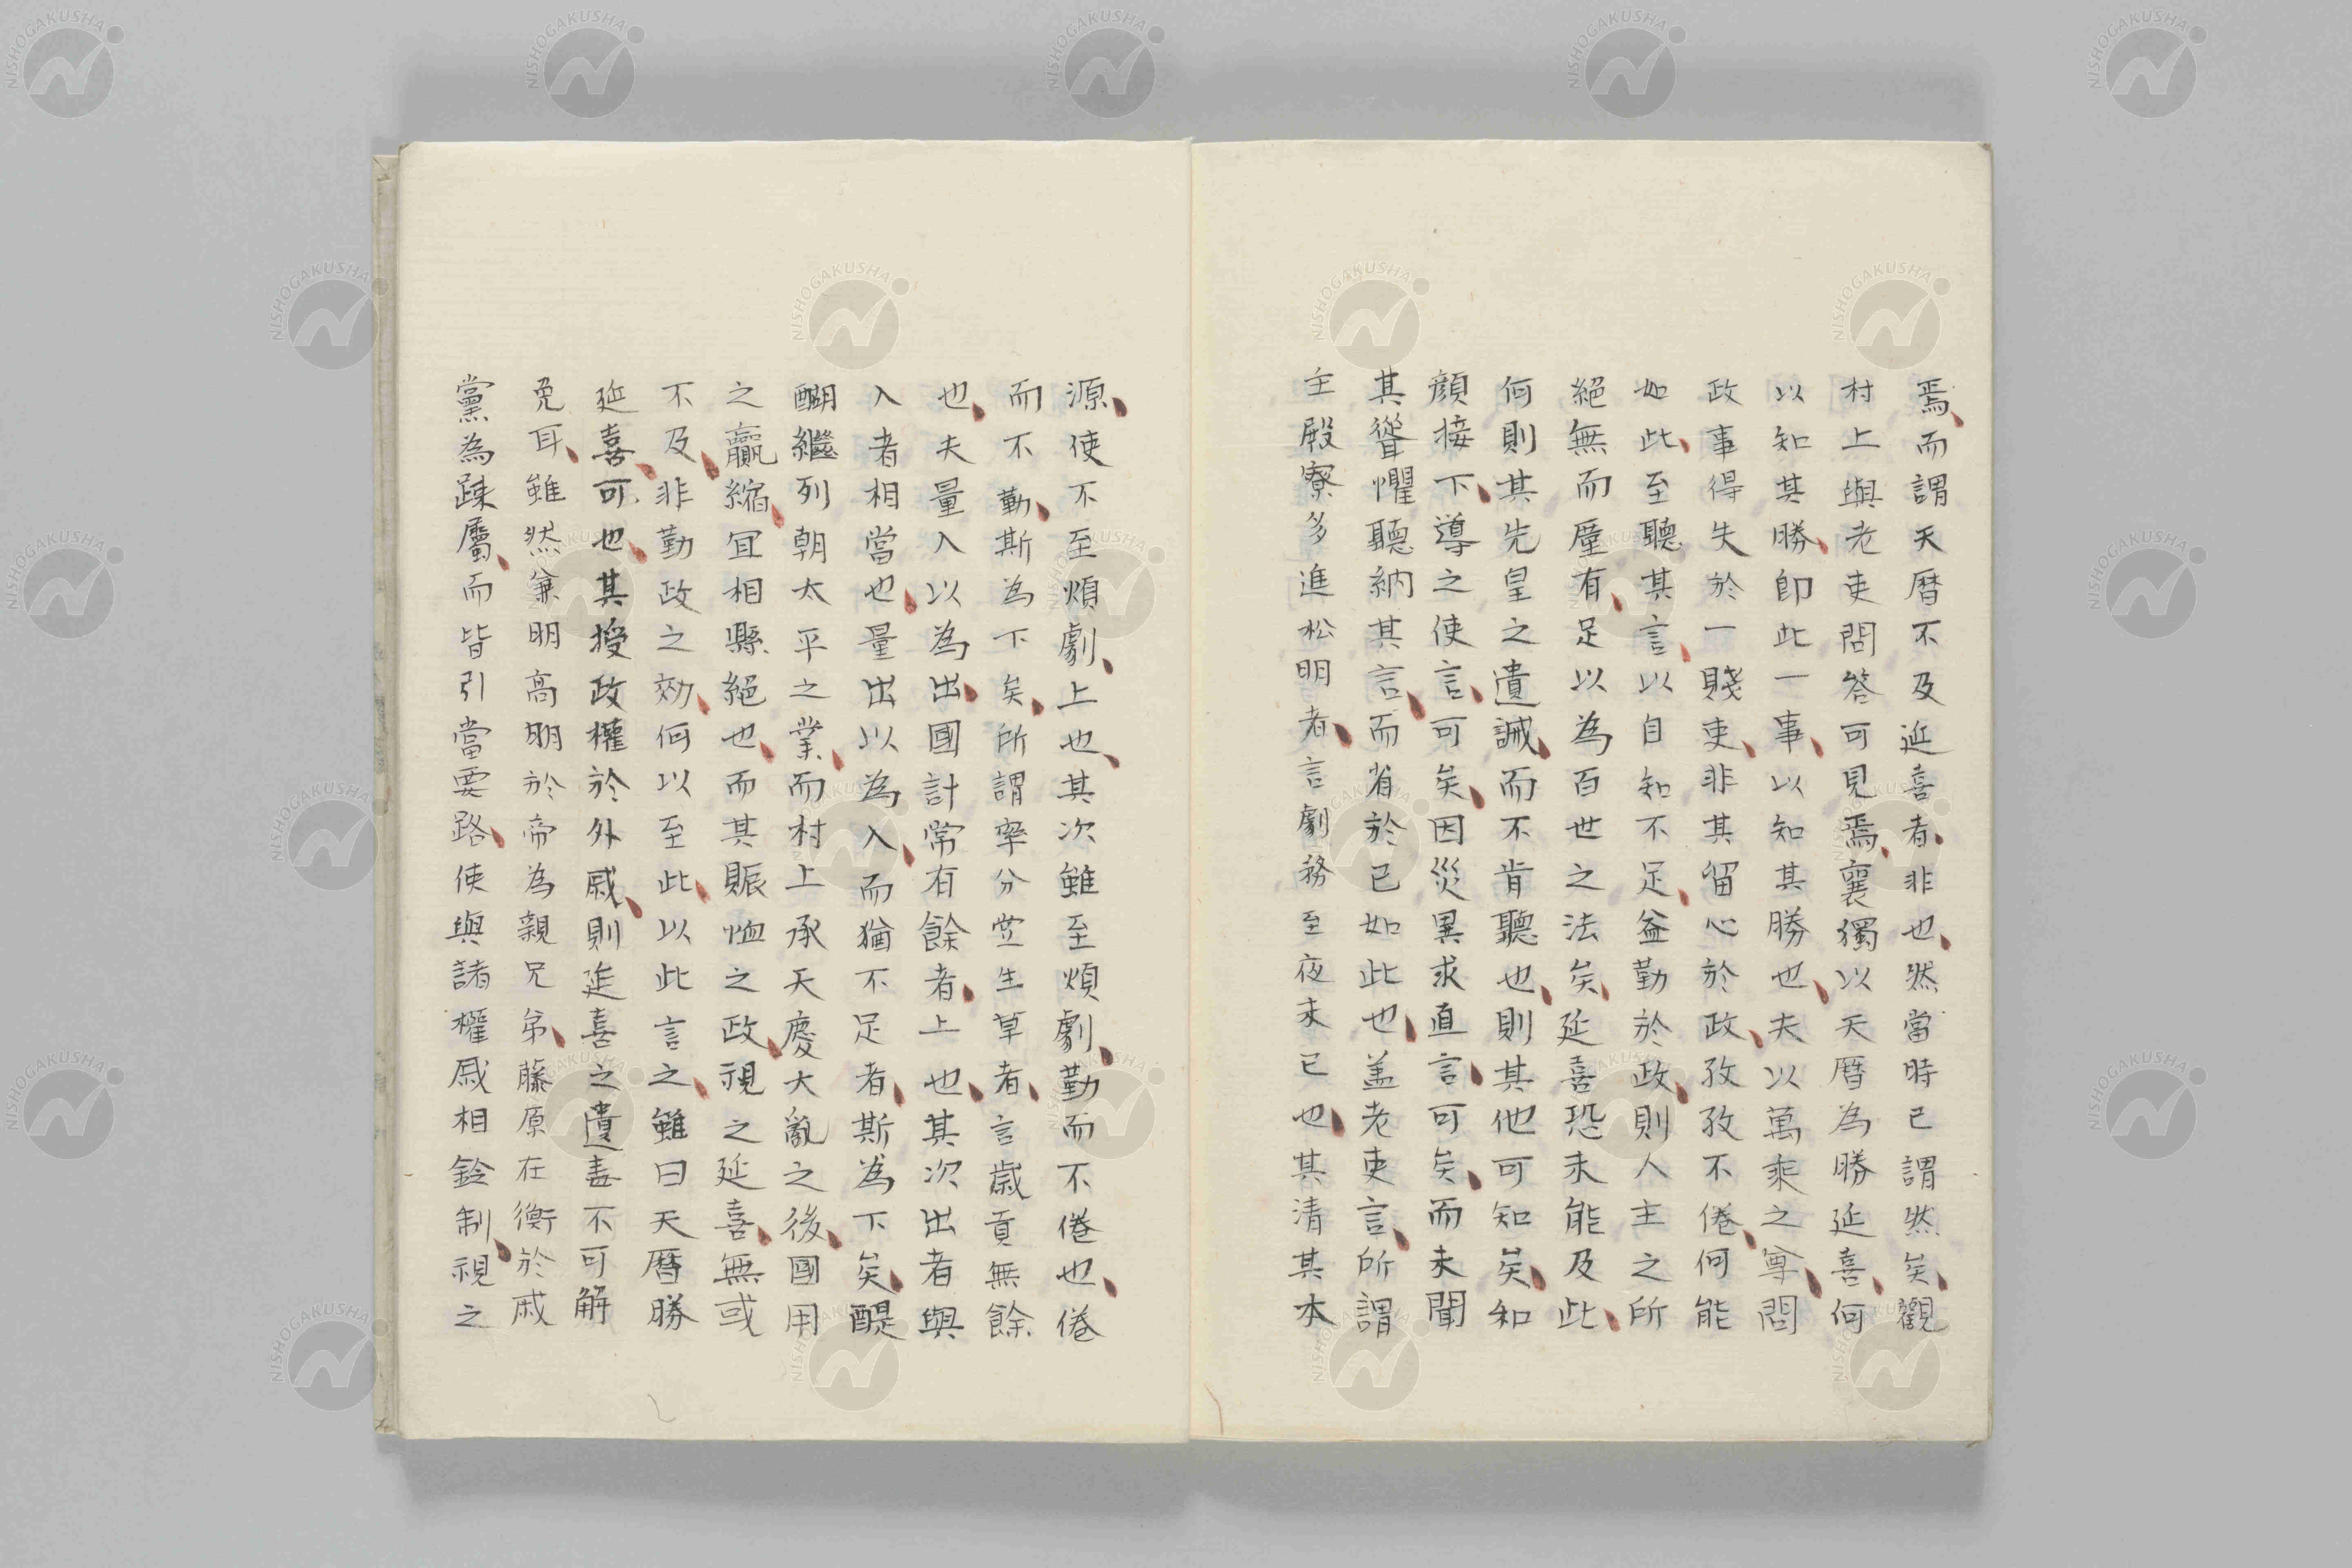 焉、而謂天曆不及延喜者、非也、然當時已謂然矣、觀
村上與老吏問答可見焉、襄獨以天曆為勝延喜、何
以知其勝、即此一事、以知其勝也、夫以萬乘之尊、問
政事得失於一賤吏、非其留心於政、孜孜不倦、何能
如此、至聽其言、以自知不足、益勤於政、則人主之所
絕無而廑有、足以為百世之法矣、延喜恐未能及此、
何則其先皇之遺誡、而不肯聽也、則其他可知矣、和
顏接下、導之使言、可矣、因災異求直言、可矣、而未聞
其聳懼聽納其言、而省於己如此也、盖老吏言、所謂
主殿寮多進松明者、言劇務至夜未已也、其清其本
源、使不至煩劇、上也、其次雖至煩劇、勤而不倦也、倦
而不勤、斯為下矣、所謂率分堂生草者、言歲貢無餘
也、夫量入以為出、國計常有餘者、上也、其次出者與
入者相當也、量出以為入、而猶不足者、斯為下矣、醍
醐繼列朝太平之業、而村上承天慶大亂之後、國用
之贏縮、宜相懸絕也、而其賑恤之政、視之延喜、無或
不及、非勤政之效、何以至此、以此言之、雖曰天曆勝
延喜、可也、其授政權於外戚、則延喜之遺毒不可解
免耳、雖然兼明高明於帝為親兄弟、藤原在衡於戚
黨為踈屬、而皆引當要路、使與諸權戚相鈐制、視之
NISHOGAKUSHA